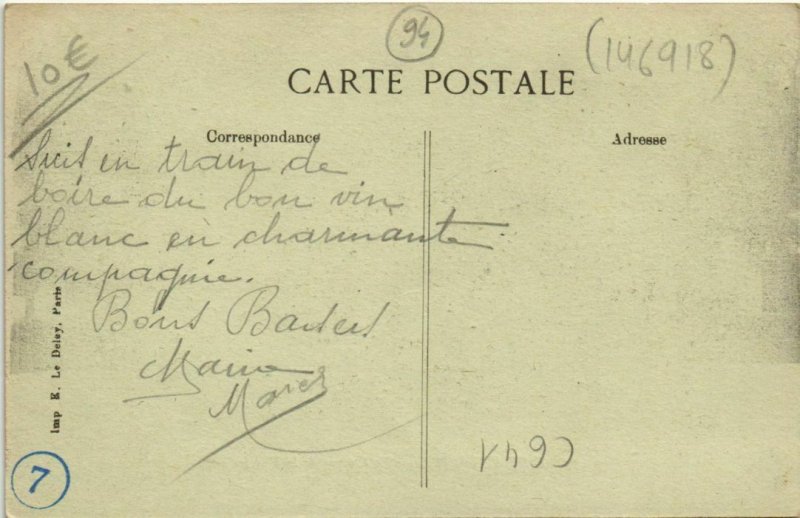 94
(146918)
10€
CARTE POSTALE
Correspondance
Adresse
Suis en train de
boire du bon vin
blanc en charmante
compagnie.
Bons Baisers
Marcel
Imp E. Le Deley, Paris
7